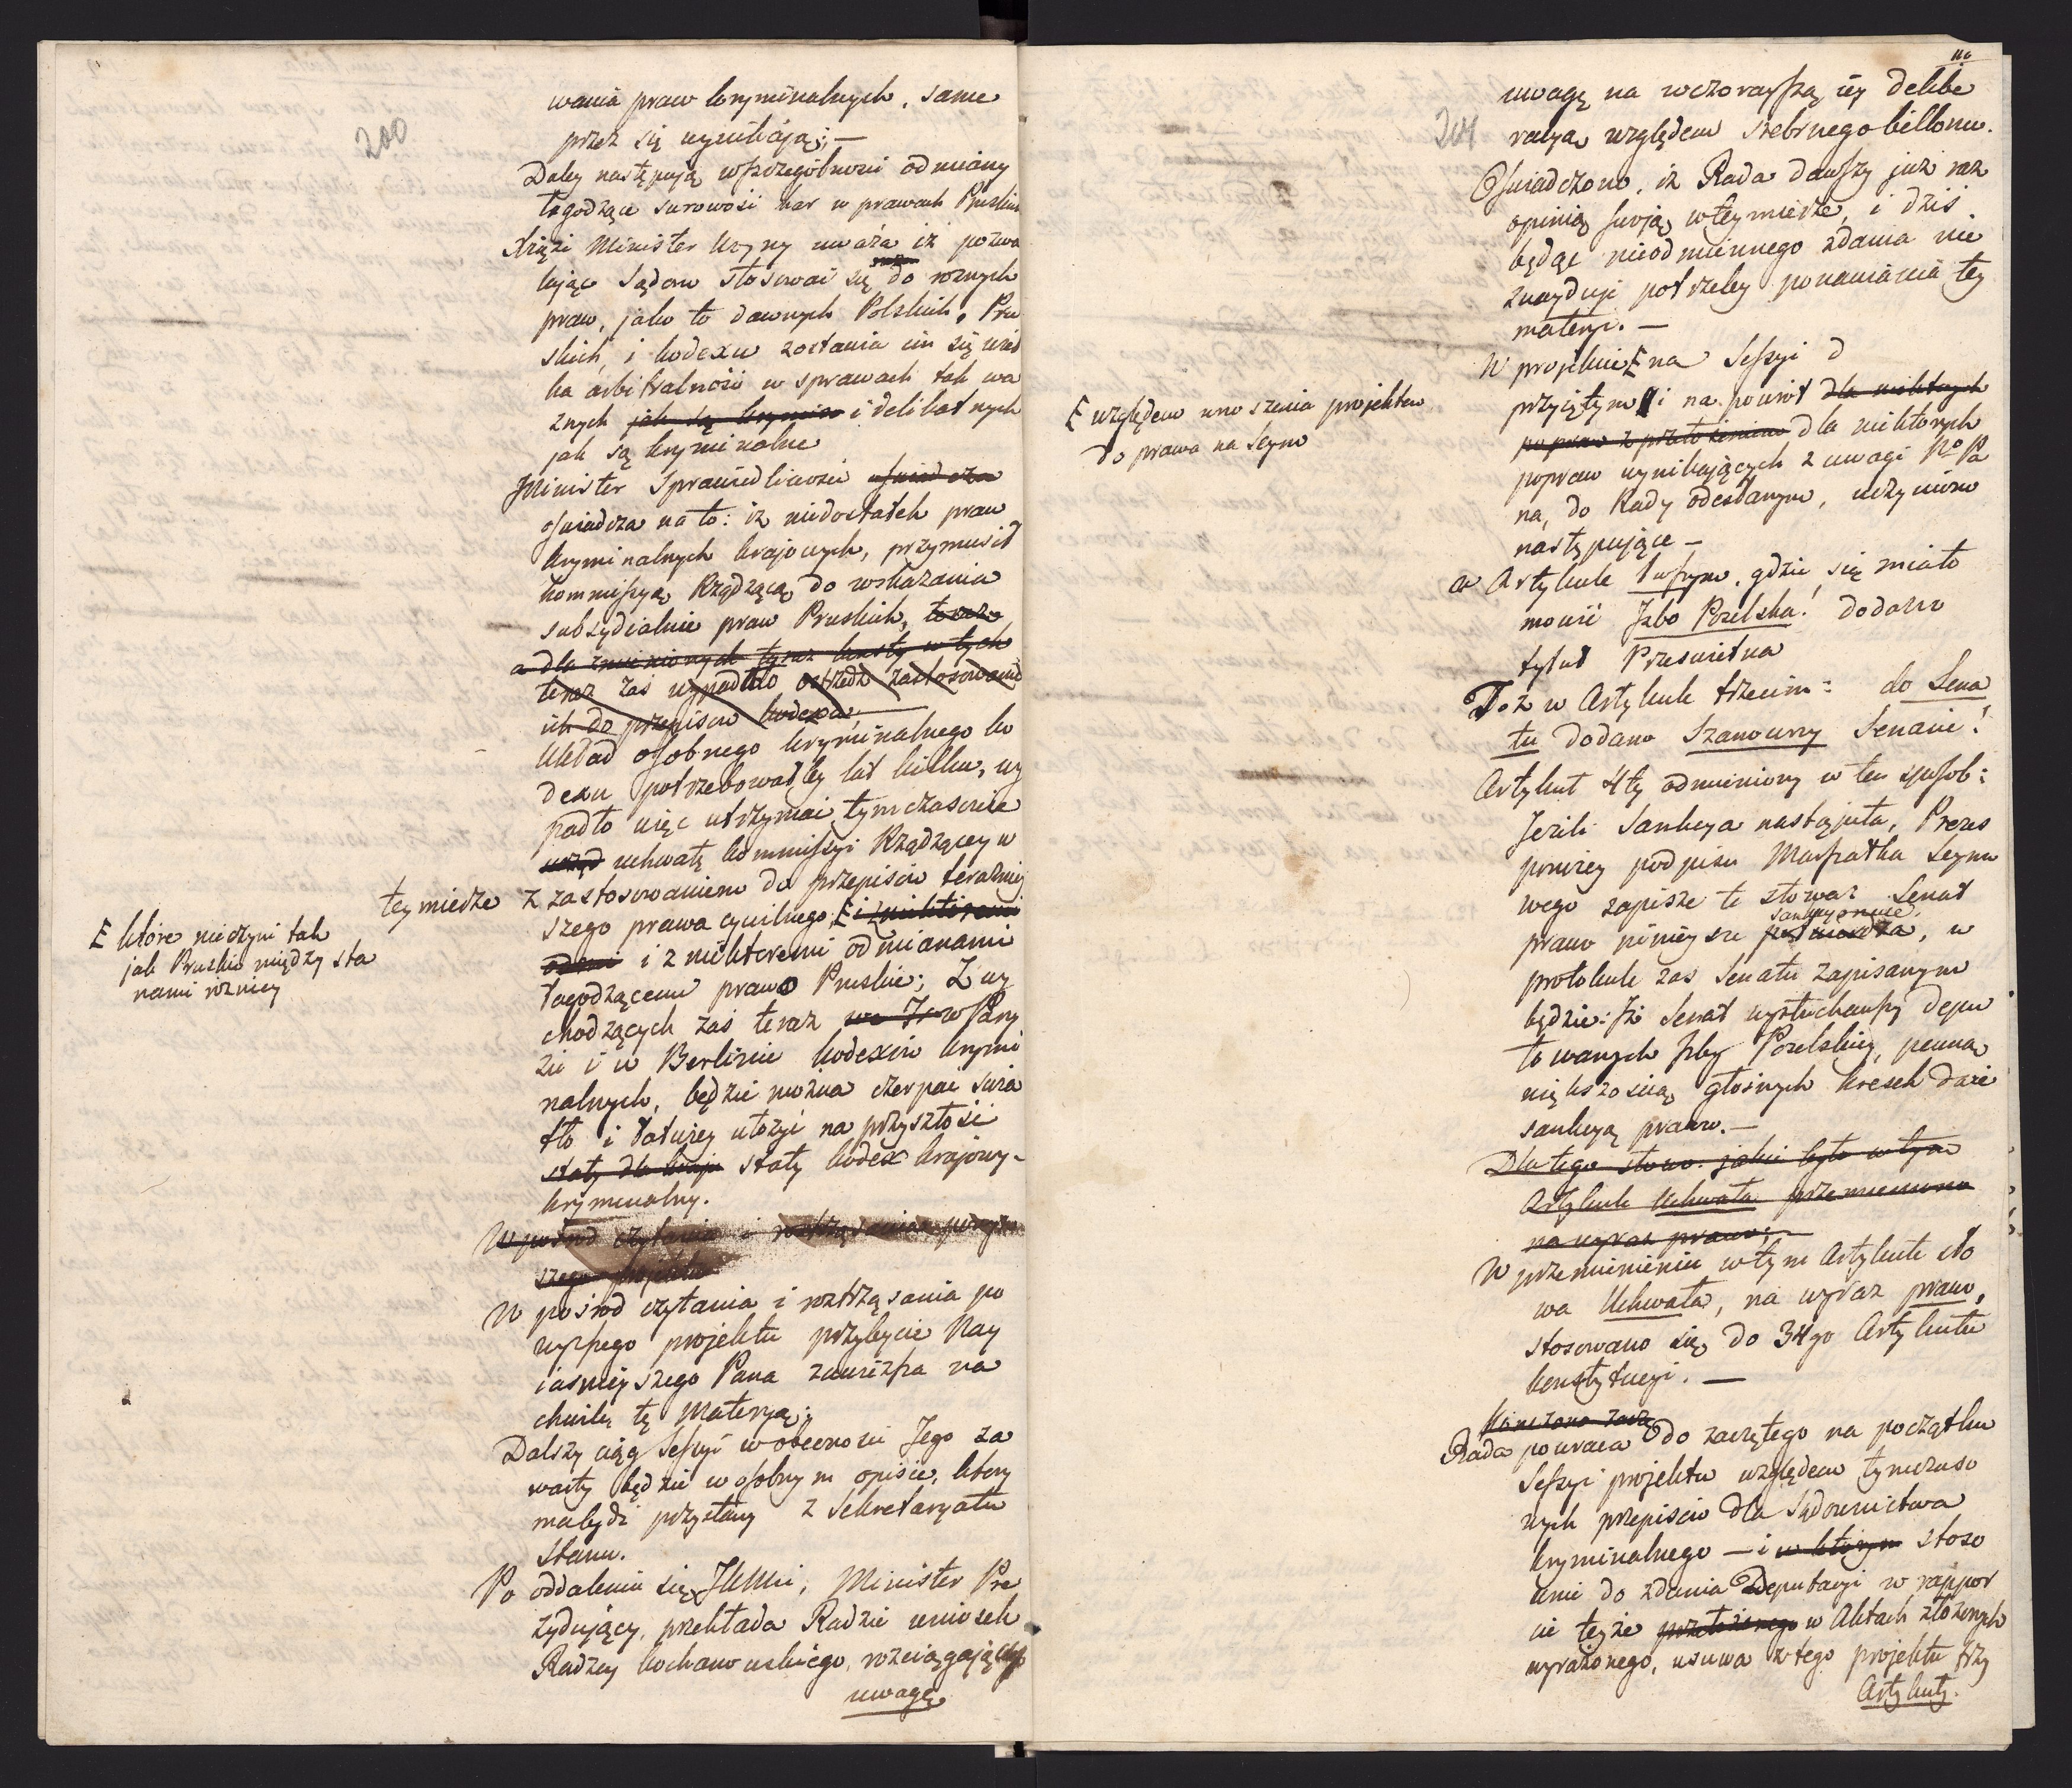 200
wania praw kryminalnych, same
przez się wynikają; —
Daley następują wszczególności odmiany
łagodzące surowość kar w prawach Pruskich
Xiąże Minister Woyny uważa iż pozwa
lając Sądom stosować się do roznych
praw, jako to dawnych Polskich, Pru
skich, i kodexu zostawia im się wiel
ka arbitralność w sprawach tak wa
znych jak są krymin i delikatnych
jak są kryminalne
Minister Sprawiedliwości oswiadcza
oswiadcza na to: iż niedostatek praw
kryminalnych krajowych, przymusił
kommissyą Rządzącą do wskazania
subsydialnie praw Pruskich, teraz
a dla zmienionych
teraz zaś wypadało zastosowanie
ich do przepisow kodexa; —
Układ osobnego kryminalnego ko
dexu potrzebowałby lat kilku, wy
padło więc utrzymać tymczasowie
uchwałę kommissyi Rządzącey w
tey mierze z zastosowaniem do przepisow teraźniey
szego prawa cywilnego, E i z niektoremi
odmi i z niektoremi odmianami
łagodzącemi prawo Pruskie; Z wy
chodzących zaś teraz w Pary
żu i w Berlinie kodexów krymi
nalnych, będzie można czerpać świa
tło i łatwiey ułożyć na przyszłość
stały dla kraju stały kodex krajowy
kryminalny.
E które nieczyni tak
jak Pruskie między sta
nami rożnicy
W pośrod czytania i roztrząsania powyż
szego projektu
W pośrod czytania i roztrząsania po
wyższego projektu przybycie Nay
iaśnieyszego Pana zawiesza na
chwilę tę Materyą;
Dalszy ciąg Sessyi w obecności Jego za
warty będzie w osobnym opisie, ktory
ma bydź przysłany z Sekretaryatu
Stanu.
Po oddaleniu się JKMci, Minister Pre
zydujący, przekłada Radzie wniosek
Radzcy Kochanowskiego, rozciągający
uwagę
110
201
uwagę na wczorayszą iey delibe
racyą względem srebrnego billonu.
Oswiadczono, iż Rada dawszy już raz
opinią swoją w tey mierze, i dziś
będąc nieodmiennego zdania nie
znayduje potrzeby ponawiania tey
materyi. —
W projekcie E na Sessyi d
przyiętym i na powrót dla niektorych
popraw z przełożeniem dla niektorych
popraw wynikających z uwagi Ngo Pa
na, do Rady odesłanym, uczyniono
następujące —
E względem wnoszenia projektow
do prawa na Seym
w Artykule 1wszym, gdzie się miało
mowić Jzbo Poselska! dodano
tytuł Prześwietna
Toż w Artykule trzecim: do Sena
tu dodano Szanowny Senacie!
Artykuł 4ty odmieniony w ten sposob:
Jeżeli Sankcya nastąpiła, Prezes
poniżey podpisu Marszałka Seymo
wego zapisze te słowa: Senat
prawo ninieysze potwierdza sankcyonuie, w
protokule zaś Senatu zapisanym
będzie: Jż Senat wysłuchawszy depu
towanych Jzby Poselskiey, pewną
większością głośnych kresek daie
sankcyą prawu. —
Dla tego słowo: jakie było w tym
Artykule Uchwała przemieniono
na wyraz prawo; —
W przemienieniu w tym Artykule sło
wa Uchwała, na wyraz prawo,
stosowano się do 34go Artykułu
konstytucyi. —
Rada powraca do zaczętego na początku
Sessyi projektu względem tymczaso
wych przepisow dla Sądownictwa
kryminalnego — i w ktorym stoso
wnie do zdania Deputacyi w rappor
cie teyże przełożonego w Aktach złożonych
wyrażonego, usuwa z tego projektu trzy
Artykuły.